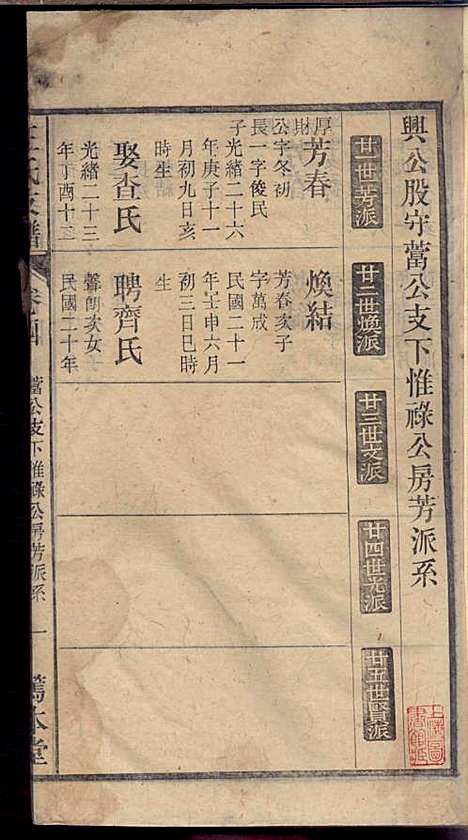 興公股守蒿公支下惟祿公房芳派系
廿一世芳派
廿二世煥派
廿三世文派
廿四世光派
廿五世賢派
芳春
厚財
公字冬初
長一字俊民
子光緒二十六
年庚子十一
月初九日亥
時生
娶查氏
光緒二十三
年丁酉十二
煥結
芳春亥子
字萬成
民國二十一
年壬申六月
初三日巳時
生
聘齊氏
馨朗亥女
民國二十年
支譜
卷四
蒿公支下惟祿公房芳派系
一
篤本堂
上海圖書館藏